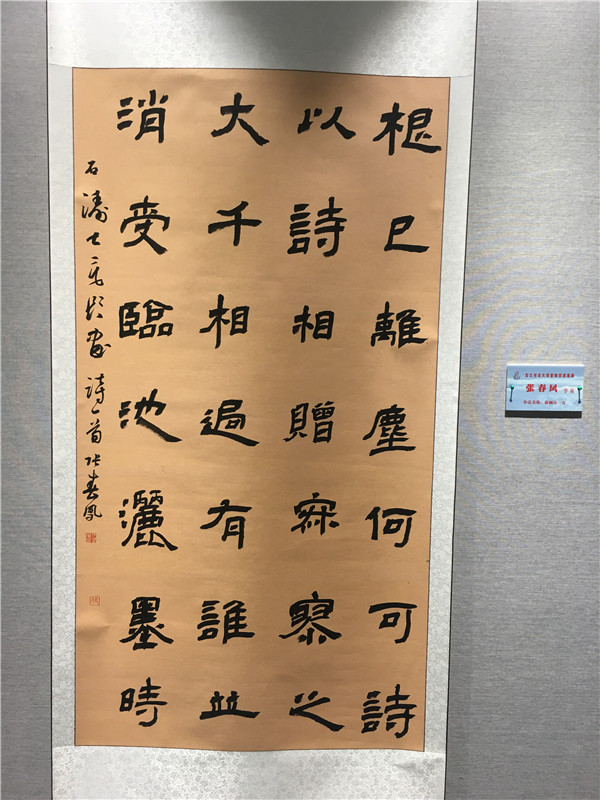 根已離塵何可詩
以詩相贈寂寥之
大千相過有誰並
消受臨池灑墨時
石濤七言題畫詩一首張春鳳
张春凤